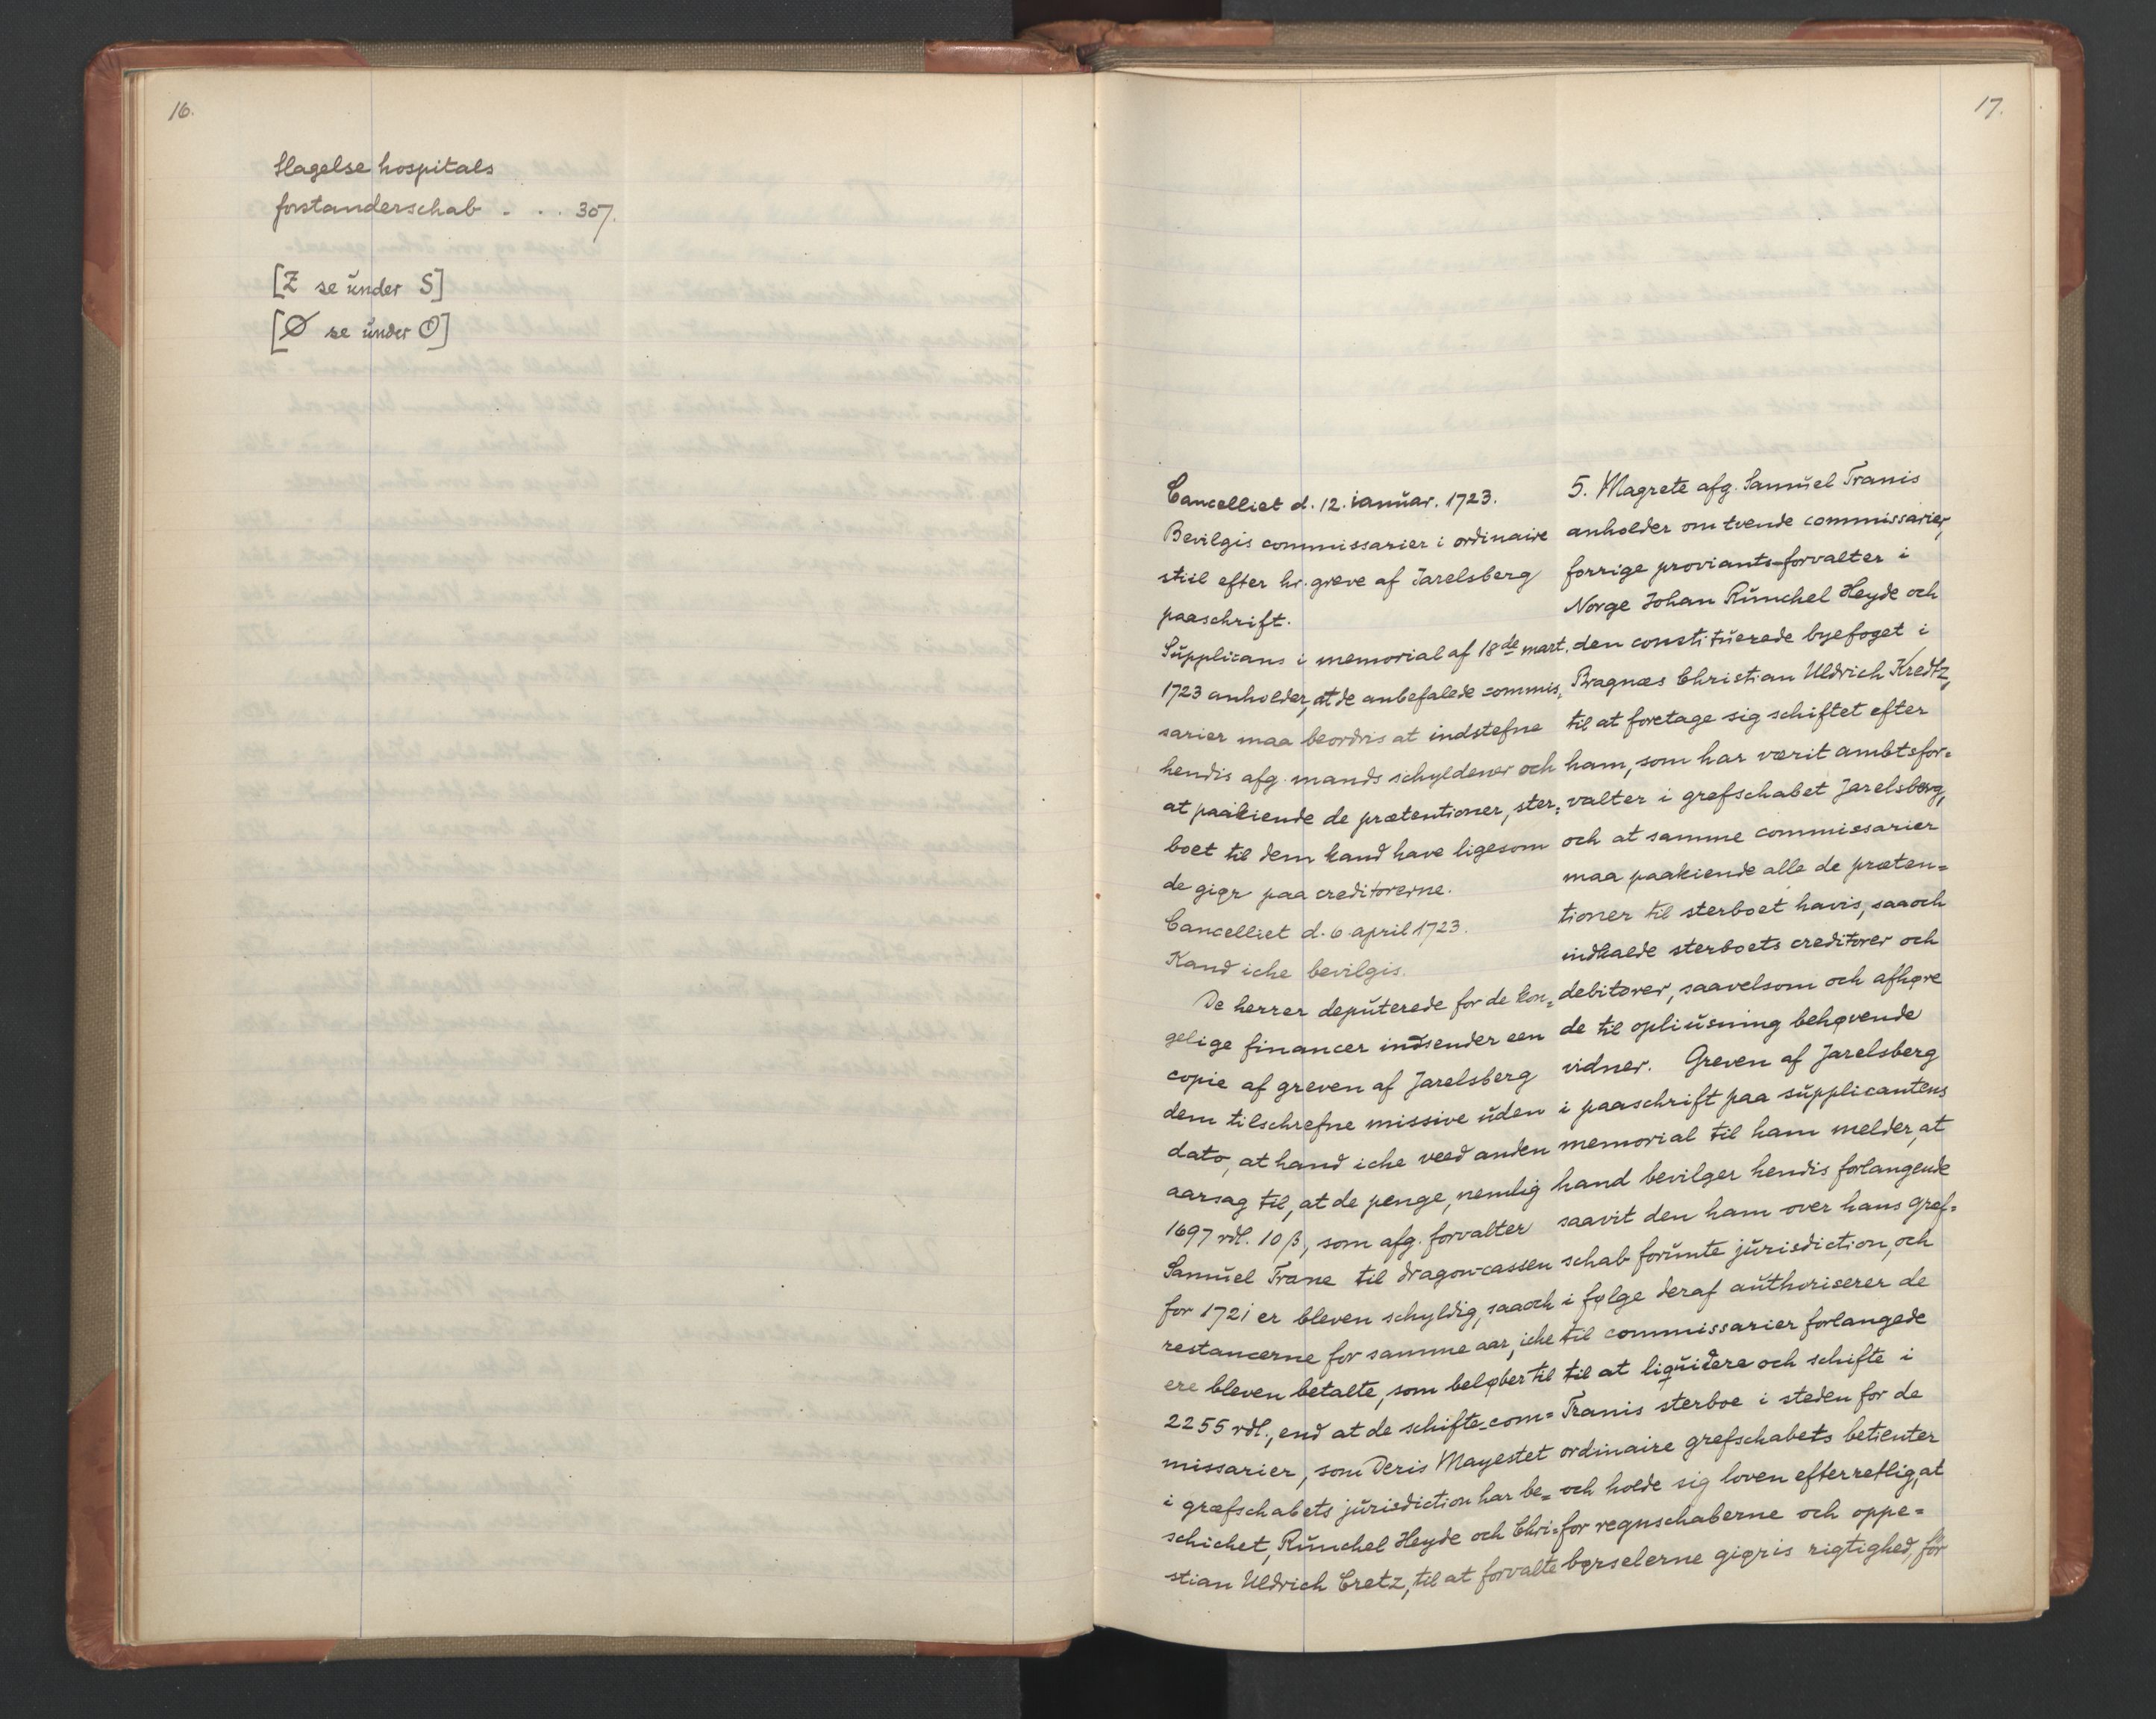 16.
Slagelse hospitals
forstanderschab . . . 307.
[Z se under S]
[Ø se under O]
17.
Cancelliet d. 12. ianuar. 1723.
Bevilgis commissarier i ordinaire
stiil efter hr. greve af Jarelsberg
paaschrift.
Supplicans i memorial af 18de mart.
1723 anholder, at de anbefalede commis=
sarier maa beordris at indstefne
hendis afg. mands schyldener och
at paakiende de prætentioner, ster=
boet til dem kand have ligesom
de giør paa creditorerne.
Cancelliet d. 6. april 1723.
Kand iche bevilgis.
De herrer deputerede for de kon=
gelige financer indsender een
copie af greven af Jarelsberg
dem tilschrefne missive uden
dato, at hand iche veed anden
aarsag til, at de penge, nemlig
1697 rdl. 10 β, som afg. forvalter
Samuel Trane til dragon-cassen
for 1721 er bleven schyldig, saaoch
restancerne for samme aar, iche
ere bleven betalte, som beløber til
2255 rdl., end at de schifte-com=
missarier, som Deris Mayestet
i græfschabets jurisdiction har be=
schichet, Runchel Heyde och Chri=
stian Uldrich Cretz, til at forvalte
5. Magrete afg. Samuel Tranis
anholder om tvende commissarier,
forrige proviants-forvalter i
Norge Johan Runchel Heyde och
den constituerede byefoget i
Bragnæs Christian Uldrich Kredtz,
til at foretage sig schiftet efter
ham, som har værit ambtsfor=
valter i grefschabet Jarelsberg,
och at samme commissarier
maa paakiende alle de præten=
tioner til sterboet havis, saaoch
indkalde sterboets creditorer och
debitorer, saavelsom och afhøre
de til opliusning behøvende
vidner. Greven af Jarelsberg
i paaschrift paa supplicantens
memorial til ham melder, at
hand bevilger hendis forlangende
saavit den ham over hans gref=
schab forunte jurisdiction, och
i følge deraf authoriserer de
til commissarier forlangede
til at liquidere och schifte i
Tranis sterboe i steden for de
ordinaire grefschabets betienter
och holde sig loven efterretlig, at
for regnschaberne och oppe=
børselerne giøris rigtighed, før